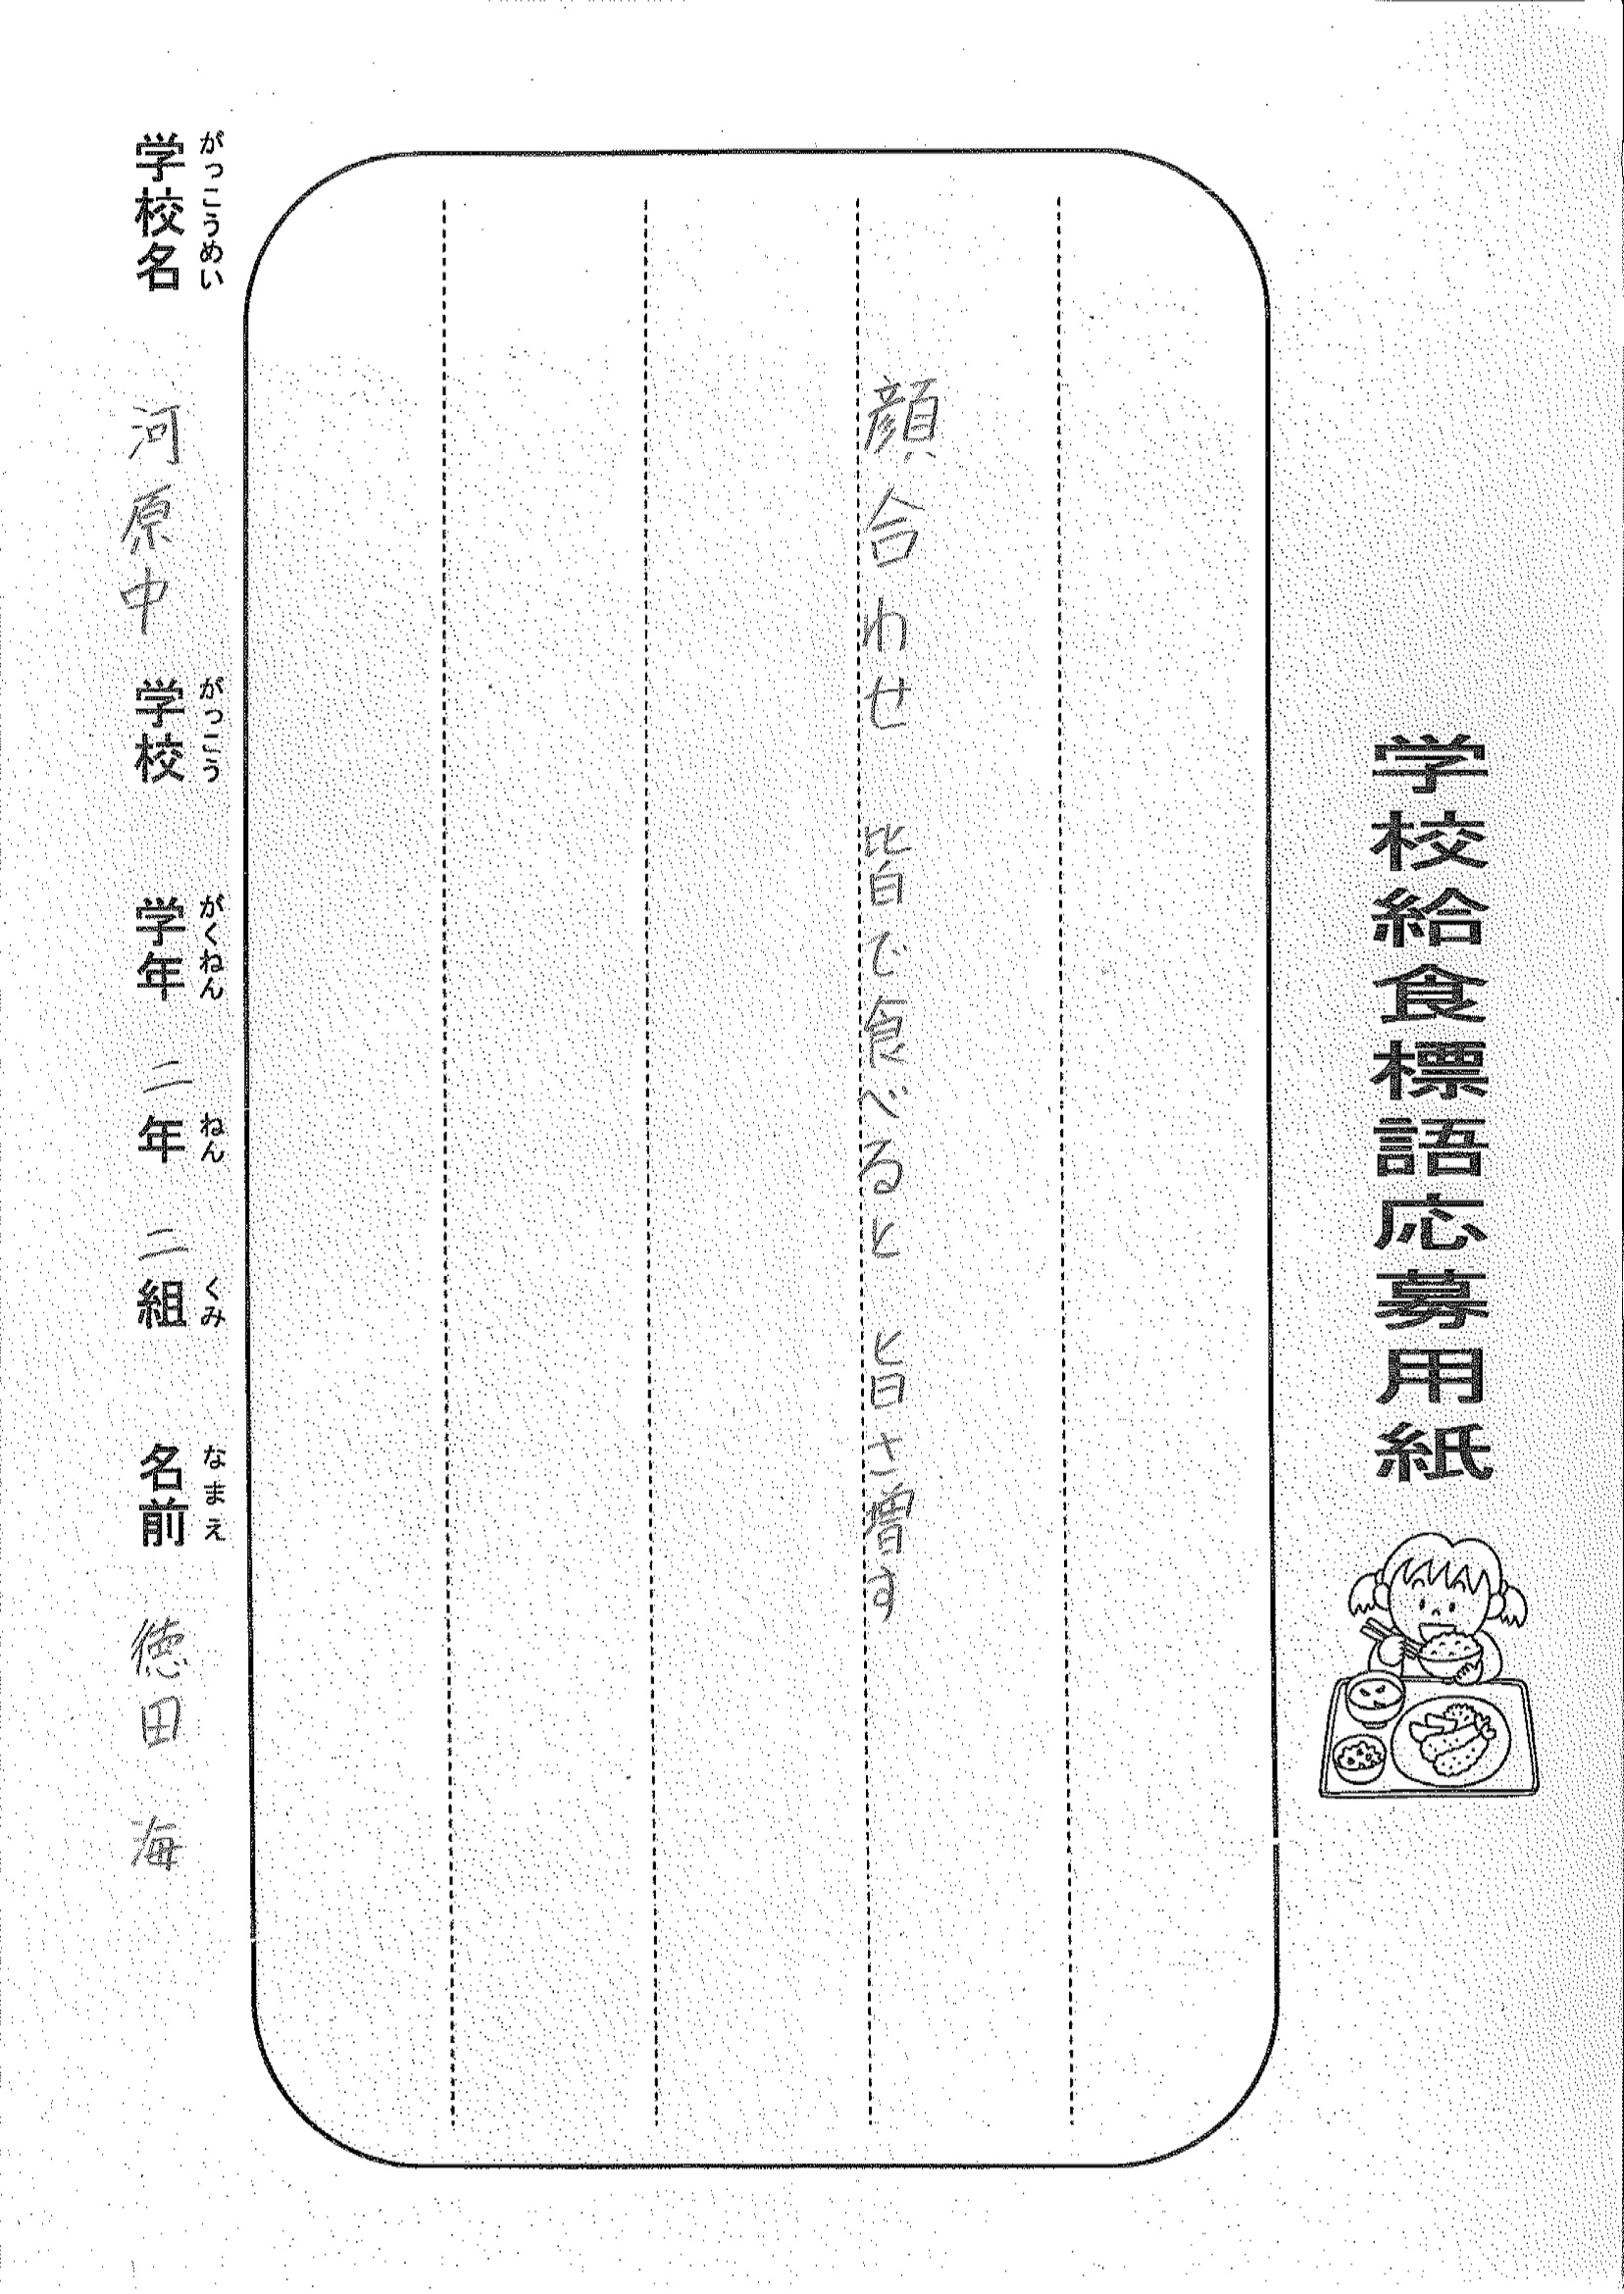 学校給食標語応募用紙
顔合わせ 皆で食べると 旨さ増す
学校名 河原中 学校 学年 二年 二組 名前 徳田 海
がっこうめい がっこう がくねん ねん くみ なまえ